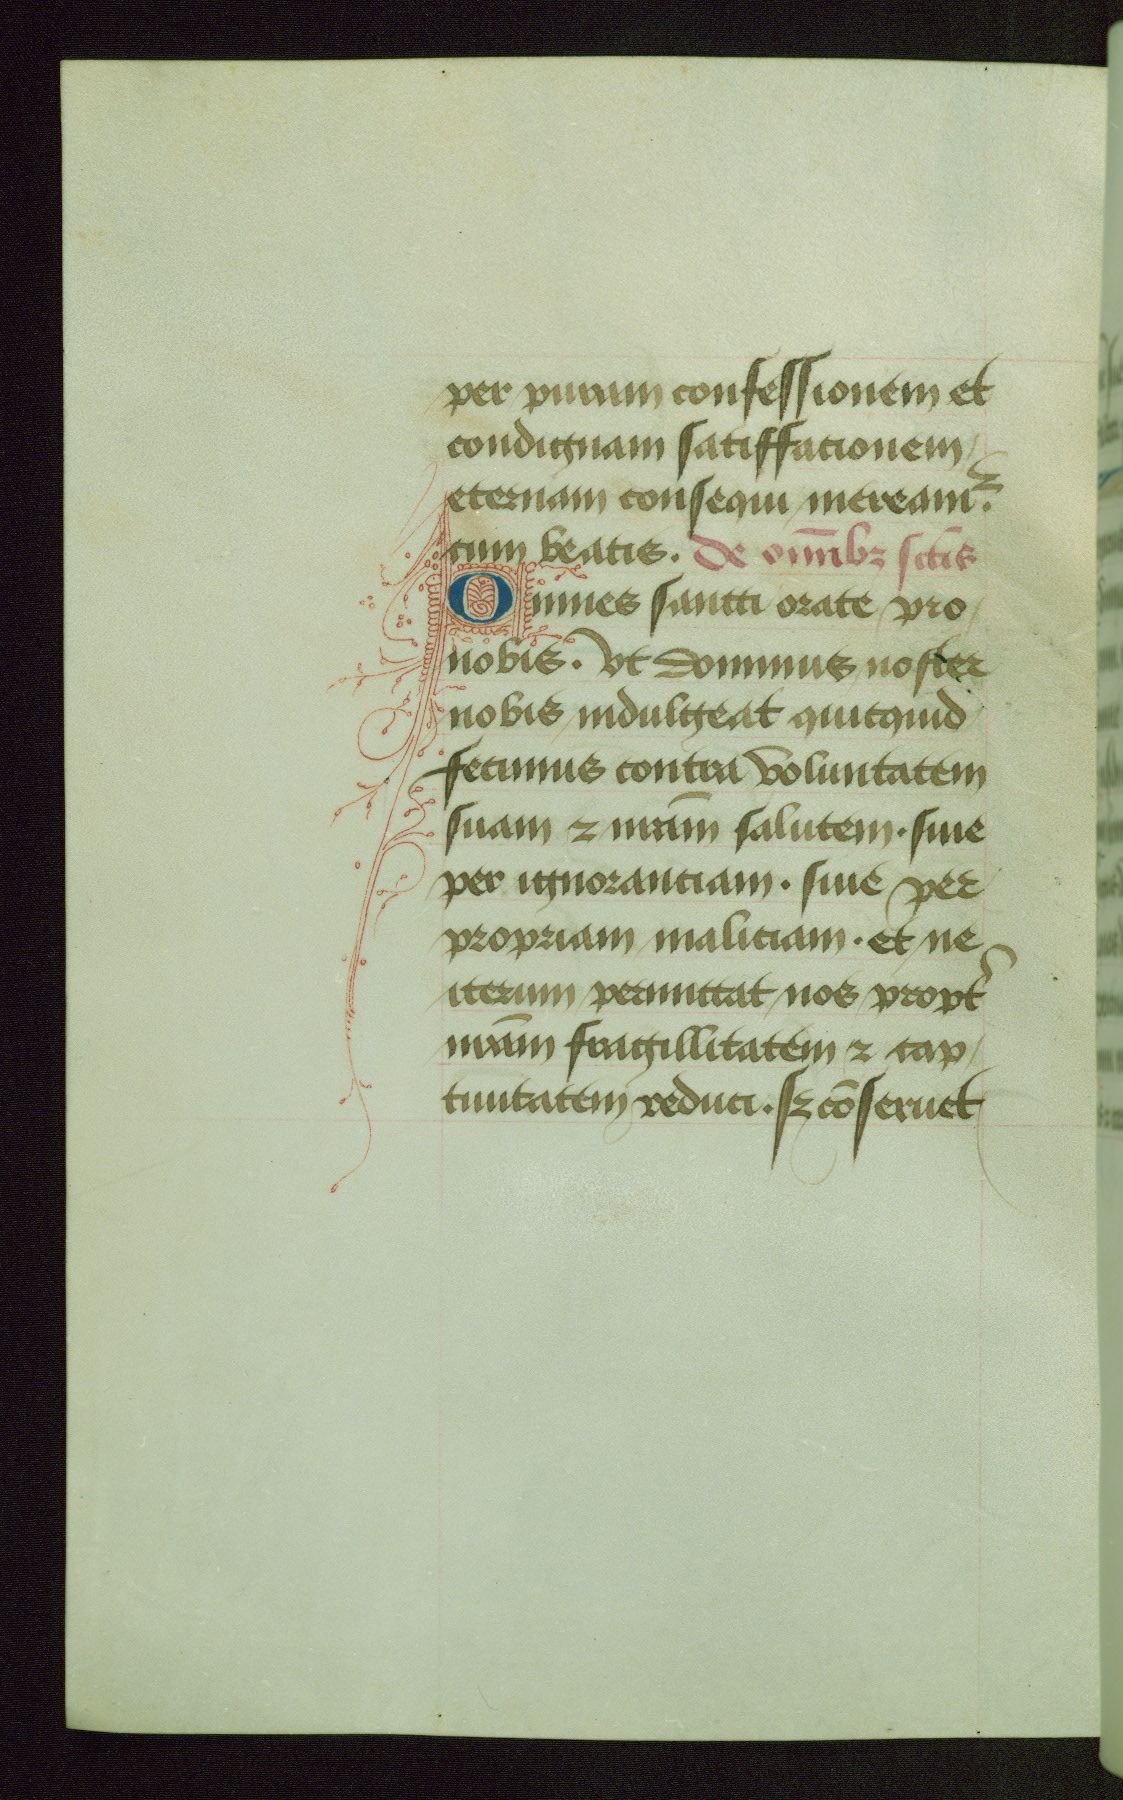 per puram confessionem et
condignam satiffacionem
eternam consequi mereamꝰ.
cum beatis. De om̄ibꝫ sc̄tis
Omnes sancti orate pro
nobis. Vt dominus noster
nobis indulgeat quicquid
fecimus contra voluntatem
suam ⁊ nr̄am salutem. siue
per ignoranciam. siue per
propriam maliciam. et ne
iterum permittat nos propt̉
nr̄am fragillitatem ⁊ cap
tiuitatem reduci. sꝫ cōseruet